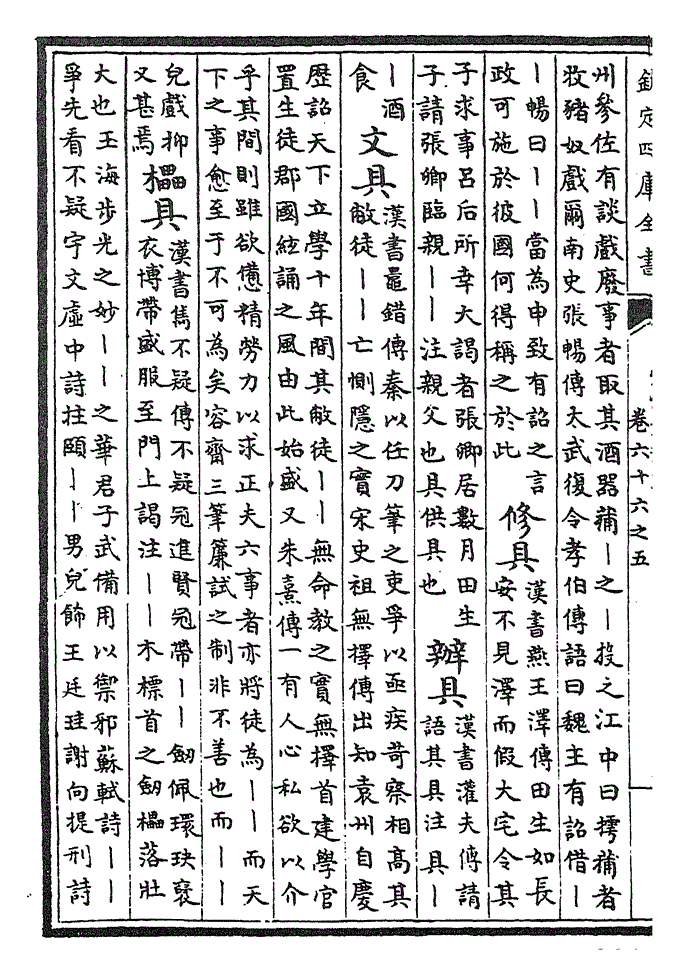 欽定四庫全書
卷六十六之五
一
州參佐有談戲廢事者取其酒器蒱丨之丨投之江中曰摴蒱者
牧豬奴戲爾南史張暢傳太武復令孝伯傳語曰魏主有詔借丨
丨暢曰丨丨當為申致有詔之言
政可施於彼國何得稱之於此
修具
漢書燕王澤傳田生如長
安不見澤而假大宅令其
子求事呂后所幸大謁者張卿居數月田生
子請張卿臨親丨丨注親父也具供具也
辦具
漢書灌夫傳請
語其具注具丨
丨酒
食
文具
漢書鼂錯傳秦以任刀筆之吏爭以亟疾苛察相高其
敝徒丨丨亡惻隱之實宋史祖無擇傳出知袁州自慶
歷詔天下立學十年間其敝徒丨丨無命教之實無擇首建學官
置生徒郡國絃誦之風由此始盛又朱熹傳一有人心私欲以介
乎其間則雖欲憊精勞力以求正夫六事者亦將徒為丨丨而天
下之事愈至于不可為矣容齋三筆簾試之制非不善也而丨丨
兒戲抑
又甚焉
櫑具
漢書雋不疑傳不疑冠進賢冠帶丨丨劒佩環玦襃
衣博帶盛服至門上謁注丨丨木標首之劒櫑落壯
大也玉海步光之妙丨丨之華君子武備用以禦邪蘇軾詩丨丨
爭先看不疑宇文虛中詩拄頤丨丨男兒飾王廷珪謝向提刑詩